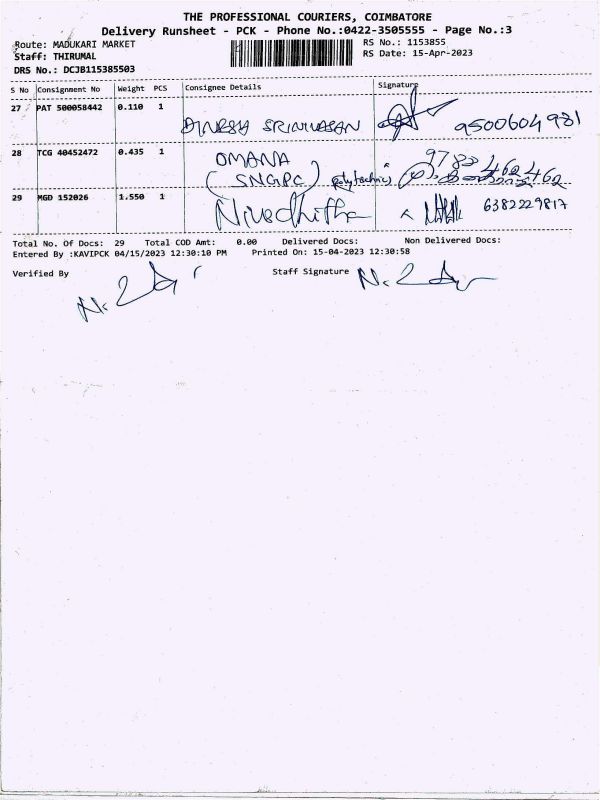 THE PROFESSIONAL COURIERS, COIMBATORE
Delivery Runsheet - PCK - Phone No.:0422-3505555 - Page No.:3
Route: MADUKARI MARKET
RS No.: 1153855
Staff: THIRUMAL
RS Date: 15-Apr-2023
DRS No.: DCJB115385503
S No Consignment No Weight PCS Consignee Details Signature
27 PAT 500058442 0.110 1
DINESH SRINIVASAN 9500604981
28 TCG 40452472 0.435 1 OMANA
(SNGPC) polytechnic
29 MGD 152026 1.550 1 Nivedhitha 6382229817
Total No. Of Docs: 29 Total COD Amt: 0.00 Delivered Docs: Non Delivered Docs:
Entered By :KAVIPCK 04/15/2023 12:30:10 PM Printed On: 15-04-2023 12:30:58
Verified By Staff Signature